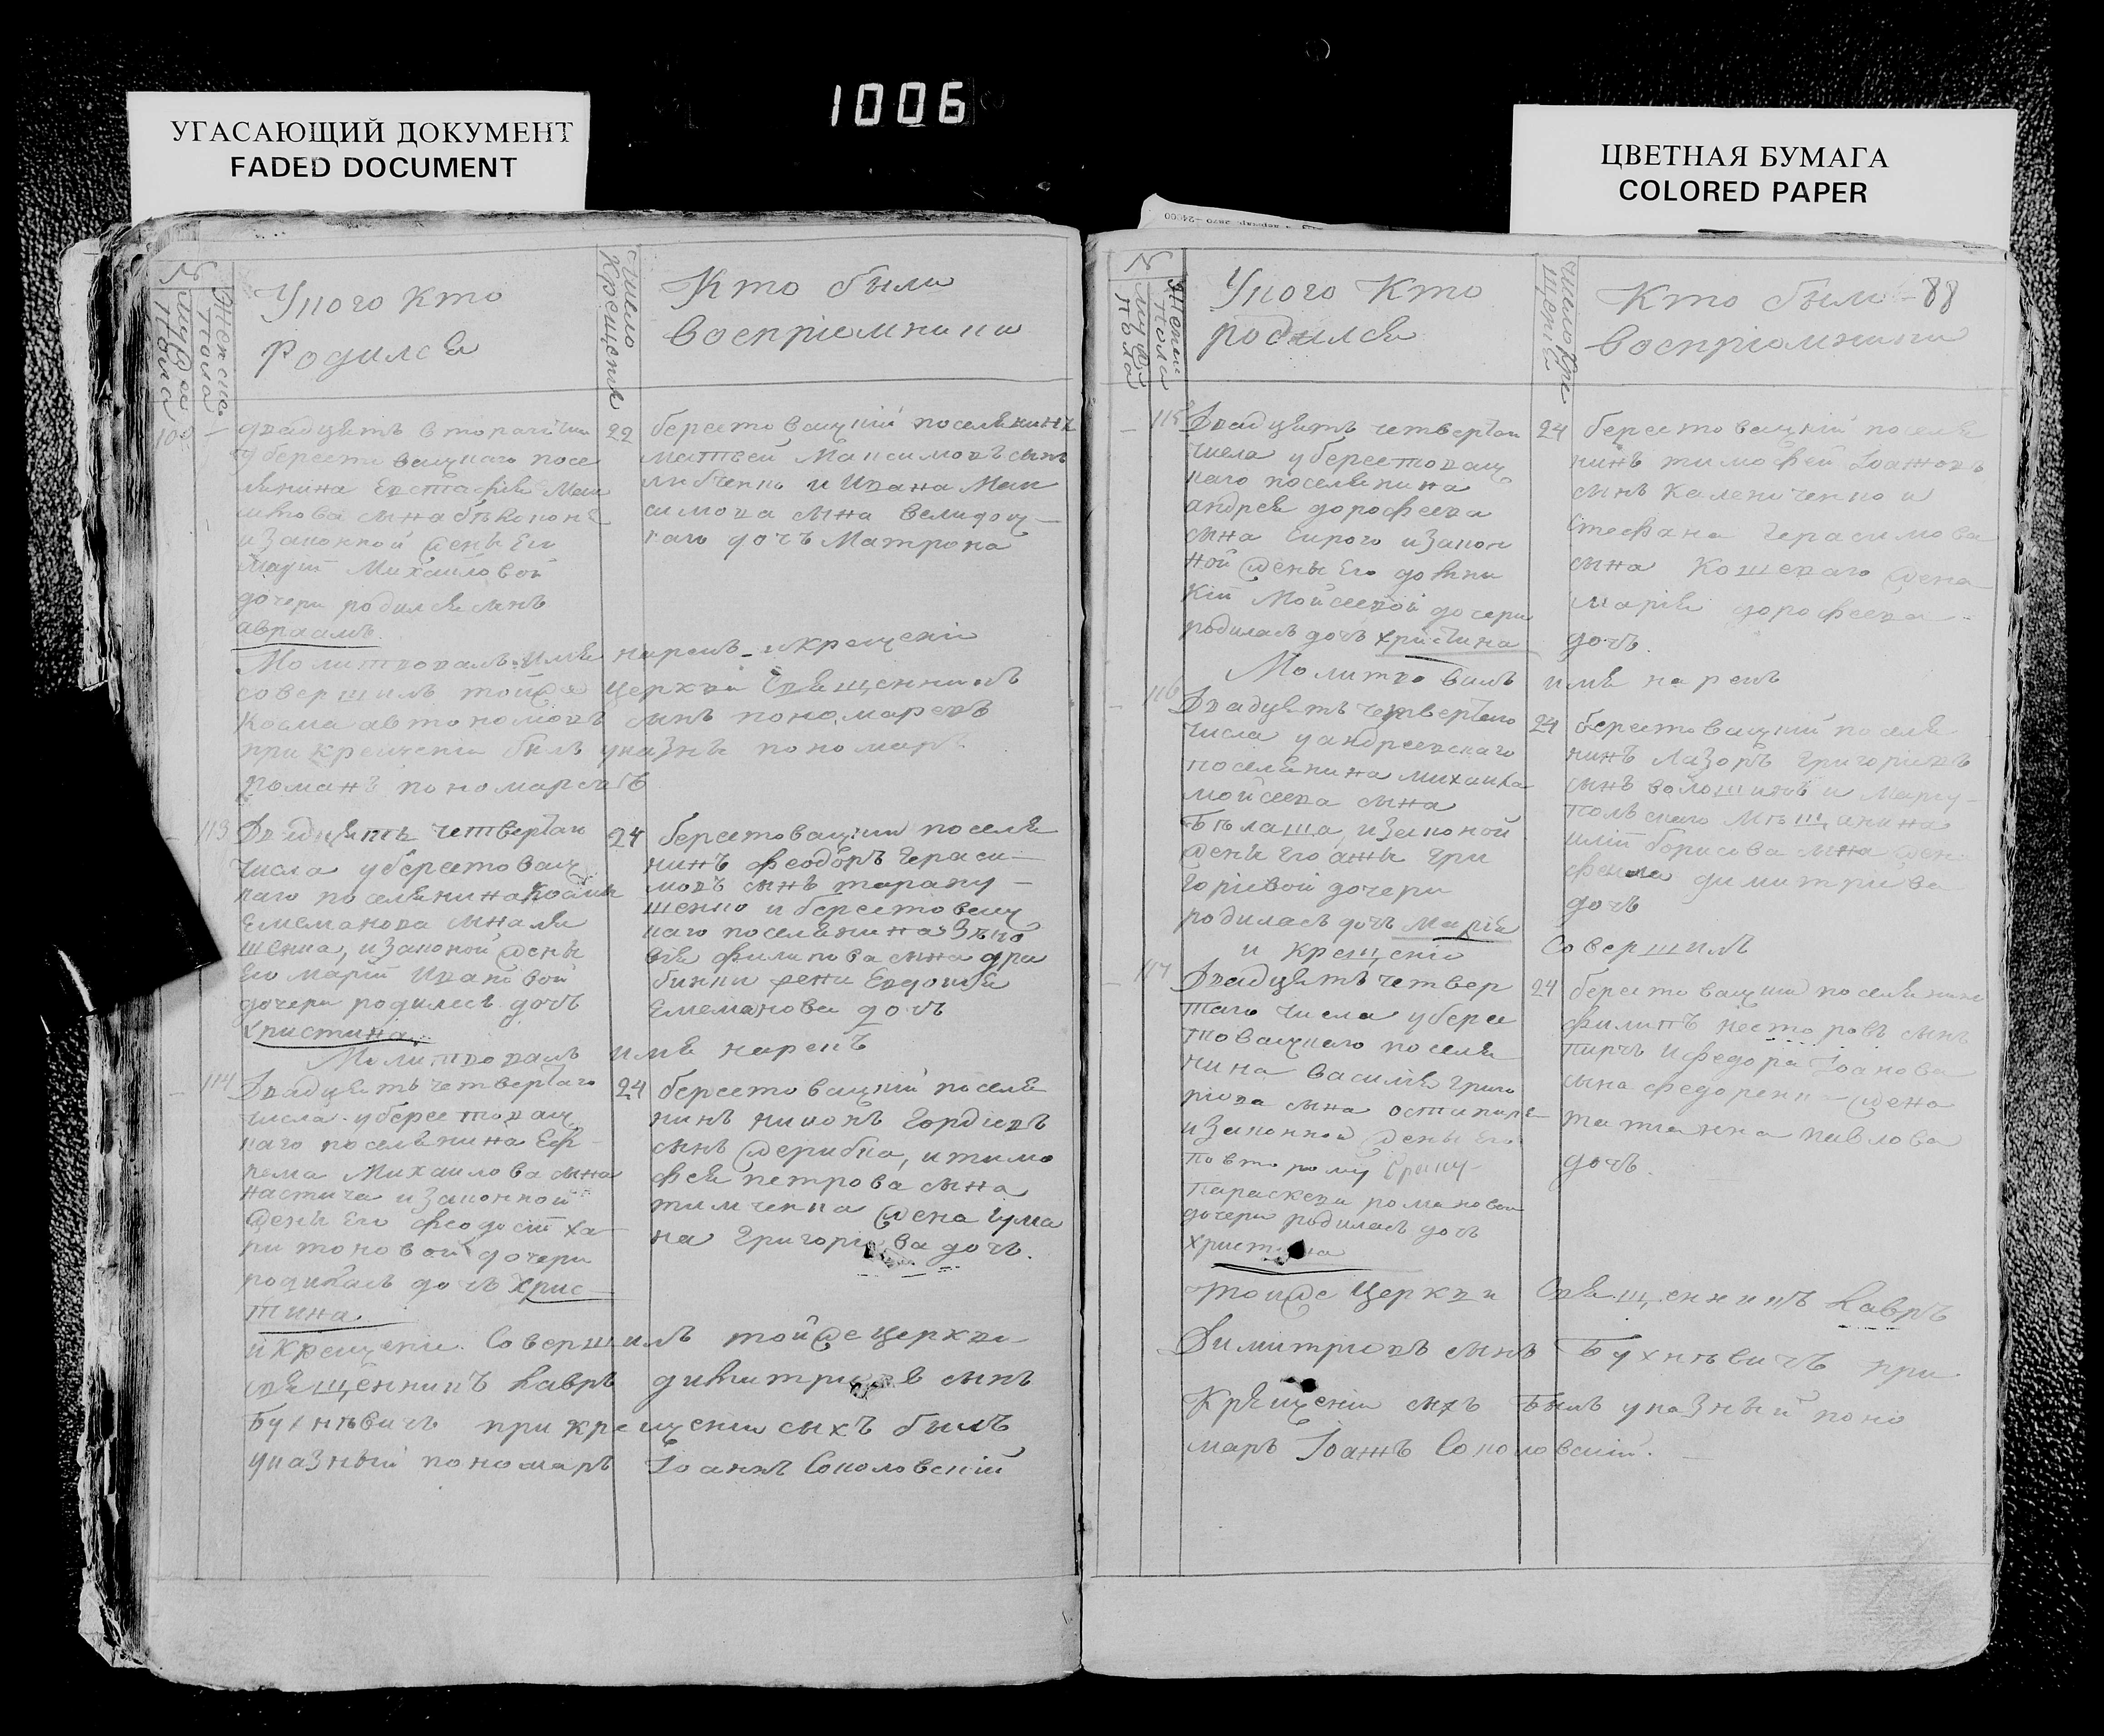 1006
УГАСАЮЩИЙ ДОКУМЕНТ
FADED DOCUMENT
ЦВЕТНАЯ БУМАГА
COLORED PAPER
№
Мужска пола
Женска пола
Укого кто
родился
Число Крещенія
Кто были
воспріемники
двадцять второго числа
у берестоващкаго посе
лянина Евстафия Мак
симова сына
изаконной жены Его
Маріи Михаиловой
дочери родился сынъ
авраамъ.
22
берестоващкій поселянинъ
матвей Максимовъ сынъ
любченко и Ивана Мак
симова сына великоц
каго дочъ Матрона
Молитвовалъ имя нарекъ и крещеніе
совершилъ тойже церкви священникъ
Косма автономовъ сынъ пономаревъ
при крещеніи былъ указнъ пономарь
романъ пономаревъ
113
Двадцять четвертаго
числа уберестоващ
каго поселянина Космы
Емелианова сына ля
шенка, изаконой жены
Его Маріи Ивановой
дочери родилась дочъ
христина.
24
берестоващкий поселя
нинъ феодоръ Гераси
мовъ сынъ тарапу
шенко и берестоващ
каго поселянина Зѣно
вія филипова сына дра
бинки жена Евдокия
Емелианова дочъ
Молитвовалъ имя нарекъ
114
Двадцять четвертаго
числа уберестоващ
каго поселянина Еф
рема Михаилова сына
настича изаконной
жены Его феодосіи ха
ритоновой дочери
родилась дочъ хрис
тина.
24
берестоващкий поселя
нинъ никонъ Гордіевъ
сынъ жерибка, и тимо
фея петрова сына
тимченка жена Гулиа
на Григоріева дочъ.
и крещеніе Совершилъ тойже церкви
священникъ Лавръ димитриевъ сынъ
Бухнѣвичъ при крещеніи сыхъ былъ
указный пономарь Іоаннъ Соколовскій
№
Мужс пола
Женск пола
Укого Кто
родился
Число Кре
щенія
Кто были
воспріемники
88
115
Двадцять четвертаго
числа уберестоващ
каго поселянина
андрея дорофеева
сына сирого изакон
ной жены Его довки
кіи Мойсеевой дочери
родилась дочъ христина
24
берестоващкій поселя
нинъ тимофей Іоанновъ
сынъ Калениченко и
Стефана Герасимова
сына Кошеваго жена
Мария дорофеева
дочъ.
Молитвовалъ имя нарекъ
116
Двадцять четвертаго
числа у андреевскаго
поселянина михаила
мойсеева сына
Бѣлаша, изаконой
жены Его анны Гри
горіевой дочери
родилась дочъ Мария
24
берестоващкий поселя
нинъ Лазорь Григориевъ
сынъ волошинъ и Мариу
польскаго Мѣщанина
борисова сына жен
димитриева
дочъ
и крещеніе Совершилъ
117
Двадцять четвер
таго числа у берес
товащкаго поселя
нина василия Григо
ріова сына
изаконной жены Его
по второму браку
параскеви романовой
дочери родилась дочъ
христина
24
берестоващкий поселянинъ
филипъ несторовъ сынъ
пирчъ и федора Іоанова
сына федоренка жена
татианна павлова
дочъ.
тойже Церкви Священникъ Лавръ
Димитриевъ сынъ Бухнѣвичъ при
Крещеніи сихъ былъ указный поно
марь Іоаннъ Соколовскій.